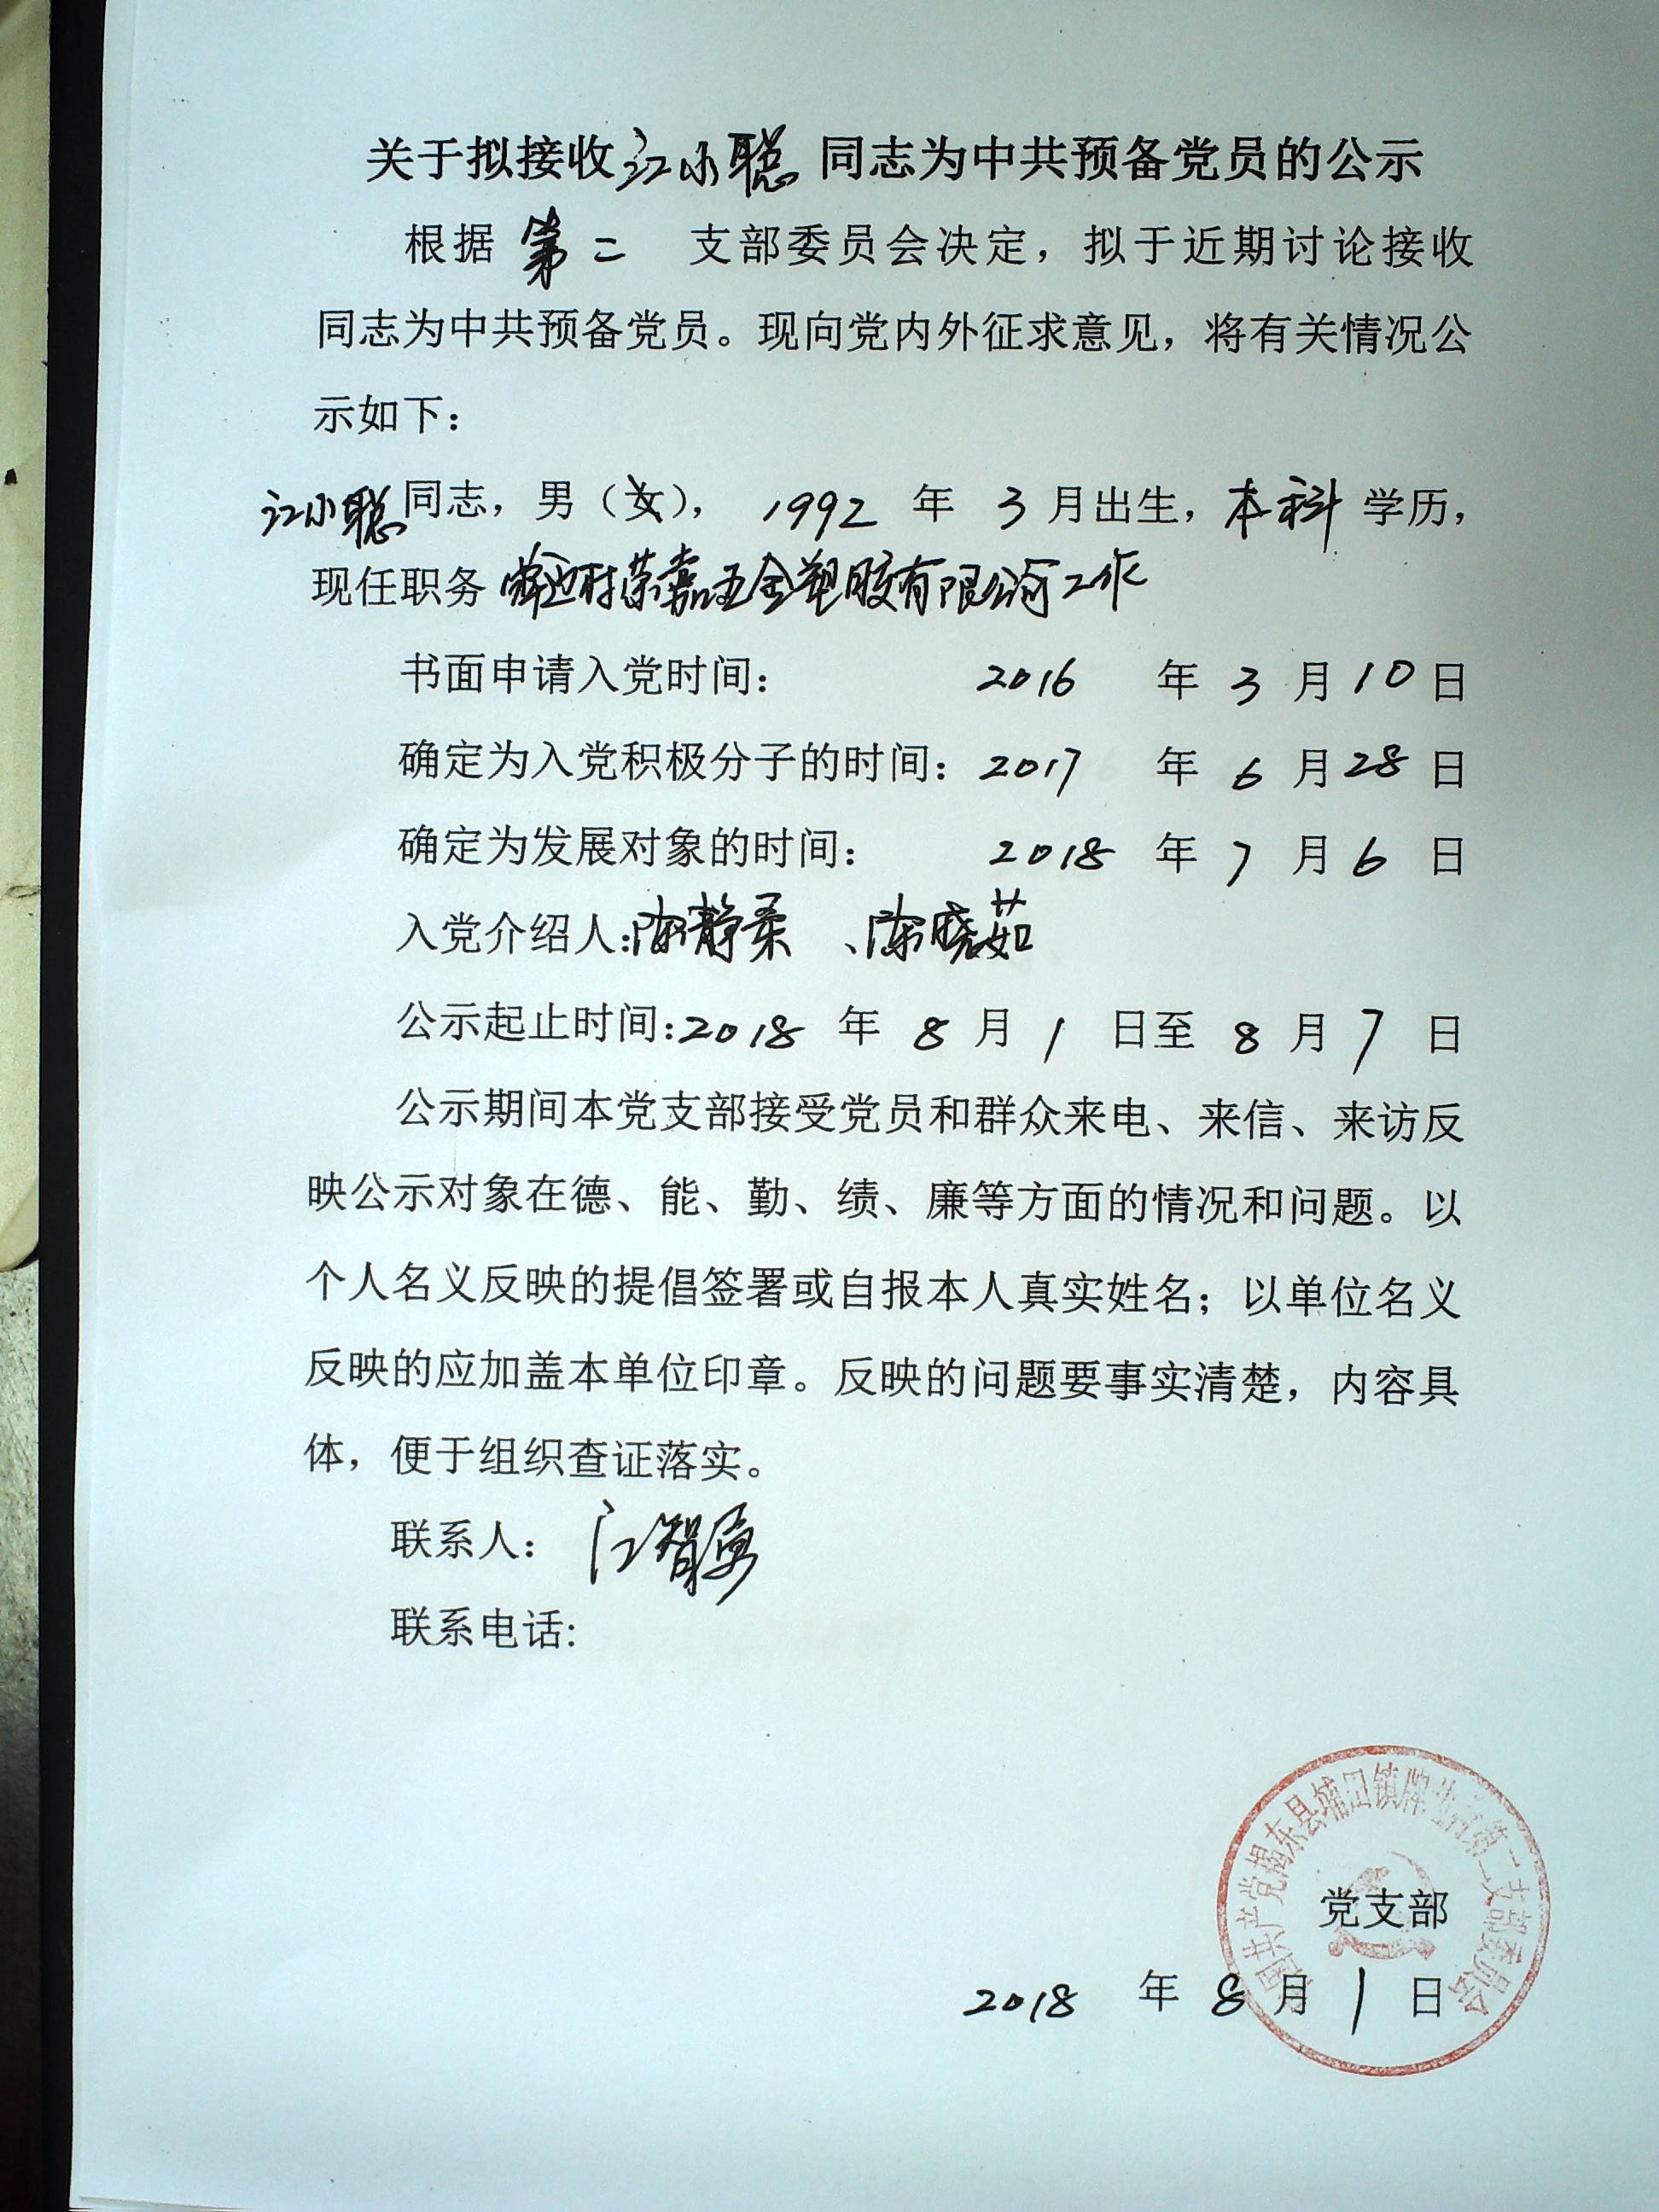 关于拟接收江小聪同志为中共预备党员的公示
根据 第二 支部委员会决定，拟于近期讨论接收
同志为中共预备党员。现向党内外征求意见，将有关情况公
示如下：
江小聪同志，男（女），1992 年 3 月出生，本科 学历，
现任职务 荣嘉五金塑胶有限公司工作
书面申请入党时间： 2016 年 3 月 10 日
确定为入党积极分子的时间：2017 年 6 月 28 日
确定为发展对象的时间： 2018 年 7 月 6 日
入党介绍人：陈静柔 、陈晓茹
公示起止时间：2018 年 8 月 1 日至 8 月 7 日
公示期间本党支部接受党员和群众来电、来信、来访反
映公示对象在德、能、勤、绩、廉等方面的情况和问题。以
个人名义反映的提倡签署或自报本人真实姓名；以单位名义
反映的应加盖本单位印章。反映的问题要事实清楚，内容具
体，便于组织查证落实。
联系人： 江智勇
联系电话：
中国共产党揭东县埔田镇牌边村第二支部委员会
党支部
2018 年 8 月 1 日